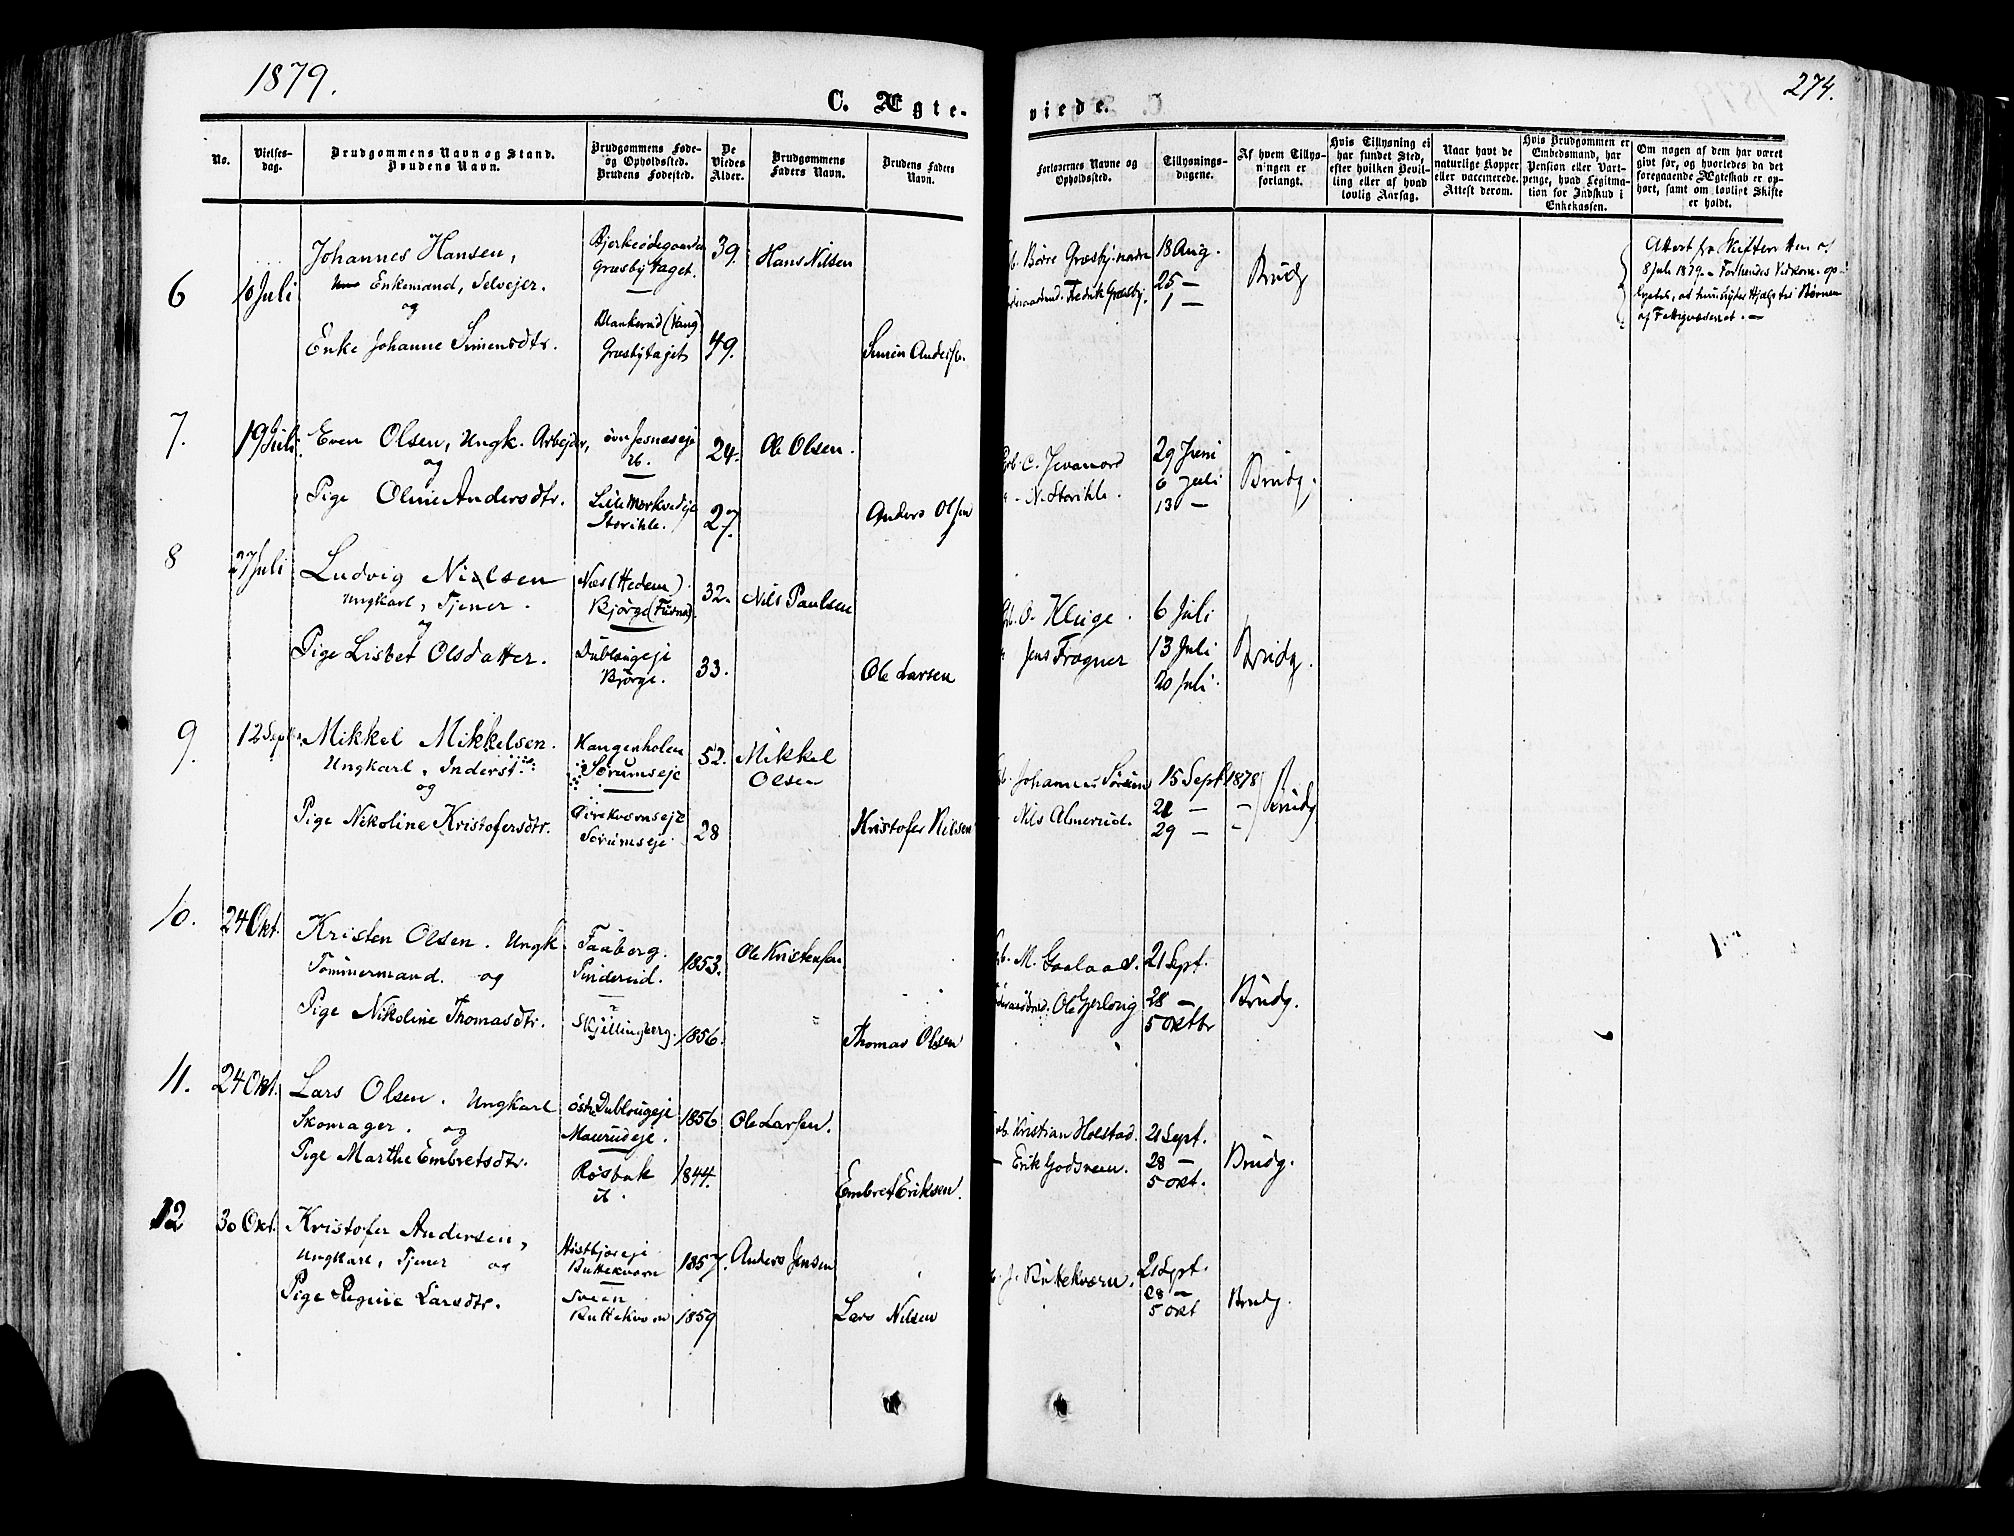 1879.
C. Ægte-
No.
Vielses-
dag.
Brudgommens Navn og Stand.
Brudens Navn.
Brudgommens Føde-
og Opholdssted.
Brudens Fødested.
De
Viedes
Alder.
Brudgommens
Faders Navn.
Brudens Faders
Navn.
6
10 Juli
Johannes Hansen,
Enkemand, Selvejer.
og
Enke Johanne Simensdtr.
Bjerkeødegaarden
Græsbytaget.
Blankerud (Vang)
Græsbytajet
39.
49.
Hans Nilsen
Simen Anders.
7.
19 Juli
Even Olsen, Ungk. Arbejder,
og
Pige Oline Andersdtr.
øvre Jesnæseje
ib.
Lille Morkvedeje
Storihle.
24.
27.
Ole Olsen.
Anders Olsen
8
27 Juli
Ludvig Nielsen
Ungkarl, Tjener.
og
Pige Lisbet Olsdatter.
Næs (Hedem)
Bjørge (Furnæs).
Dublougeje
Bjørge.
32.
33.
Nils Paulsen
Ole Larsen
9.
12 Septbr.
Mikkel Mikkelsen.
Ungkarl, Inderst.
og
Pige Nikoline Kristofersdtr.
Haugenholen
Sørumseje
Sørumseje
52.
28
Mikkel
Olsen
Kristofer Nilsen
10.
24 Okt.
Kristen Olsen. Ungk.
Tømmermand. og
Pige Nikoline Thomasdtr.
Fauberg.
Pinderud.
Skjellingberg.
1853.
1856.
Ole Kristensen
Thomas Olsen
11.
24 Okt.
Lars Olsen. Ungkarl
Skomager. og
Pige Marthe Embretsdtr.
østre Dublougeje
Maurudeje.
Røsbak
ib.
1856
1844.
Ole Larsen.
Embret Eriksen.
12
30 Okt.
Kristofer Andersen,
Ungkarl, Tjener og
Pige Regine Larsdtr.
Buttekvern
Sveen
Buttekvern
1857.
1859
Anders Jensen
Lars Nilsen
274.
viede.
Forlovernes Navne og
Opholdssted.
Tillysnings-
dagene.
Af hvem Tillys-
ningen er
forlangt.
Hvis Tillysning ei
har fundet Sted,
efter hvilken Bevil-
ling eller af hvad
lovlig Aarsag.
Naar havt de
naturlige Kopper
eller vaccinerede.
Attest derom.
Hvis Brudgommen er
Embedsmand, har
Pension eller Vart-
penge, hvad Legitima-
tion for Indskud i
Enkekassen.
Om nogen af dem har været
givt før, og hvorledes da det
foregaaende Ægteskab er op-
hørt, samt om lovligt Skifte
er holdt.
Børre Græsby
Fredrik Græsby.
18 Aug.
25 —
1 —
Brudg
Attest fra Skifteretten af
8 Juli 1879. — Forhendes Vedkom. op-
lystes, at hun nyder Hjælp til Børnene
af Fattigvæsenet. —
C. Jevanord
N. Storihle.
29 Juni
6 Juli
13 —
Brudg.
O. Kluge.
Jens Frogner
6 Juli
13 Juli
20 Juli.
Brudg.
Johannes Sørum
Nils Almerud.
15 Sept 1878
22 — —
29 — —
Brudg
M. Gaalaas.
Ole Gjerlaug
21 Sept.
28 —
5 Oktbr
Brudg.
Kristian Holstad.
Erik Godsveen.
21 Sept.
28 —
5 Okt.
Brudg.
J. Butekværn.
21 Sept.
28 —
5 Okt
Brudg.